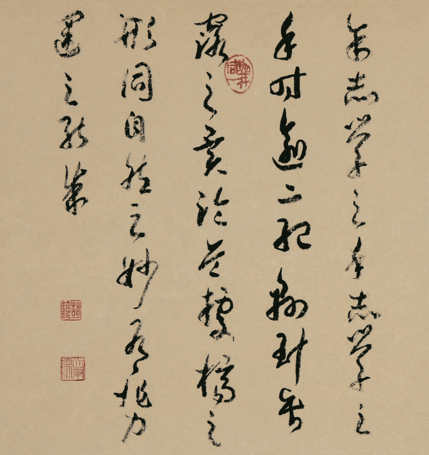 余志學之年志學之
年時逾二紀懸針垂
露之異臨危據槁之
形同自然之妙有非力
運之能成